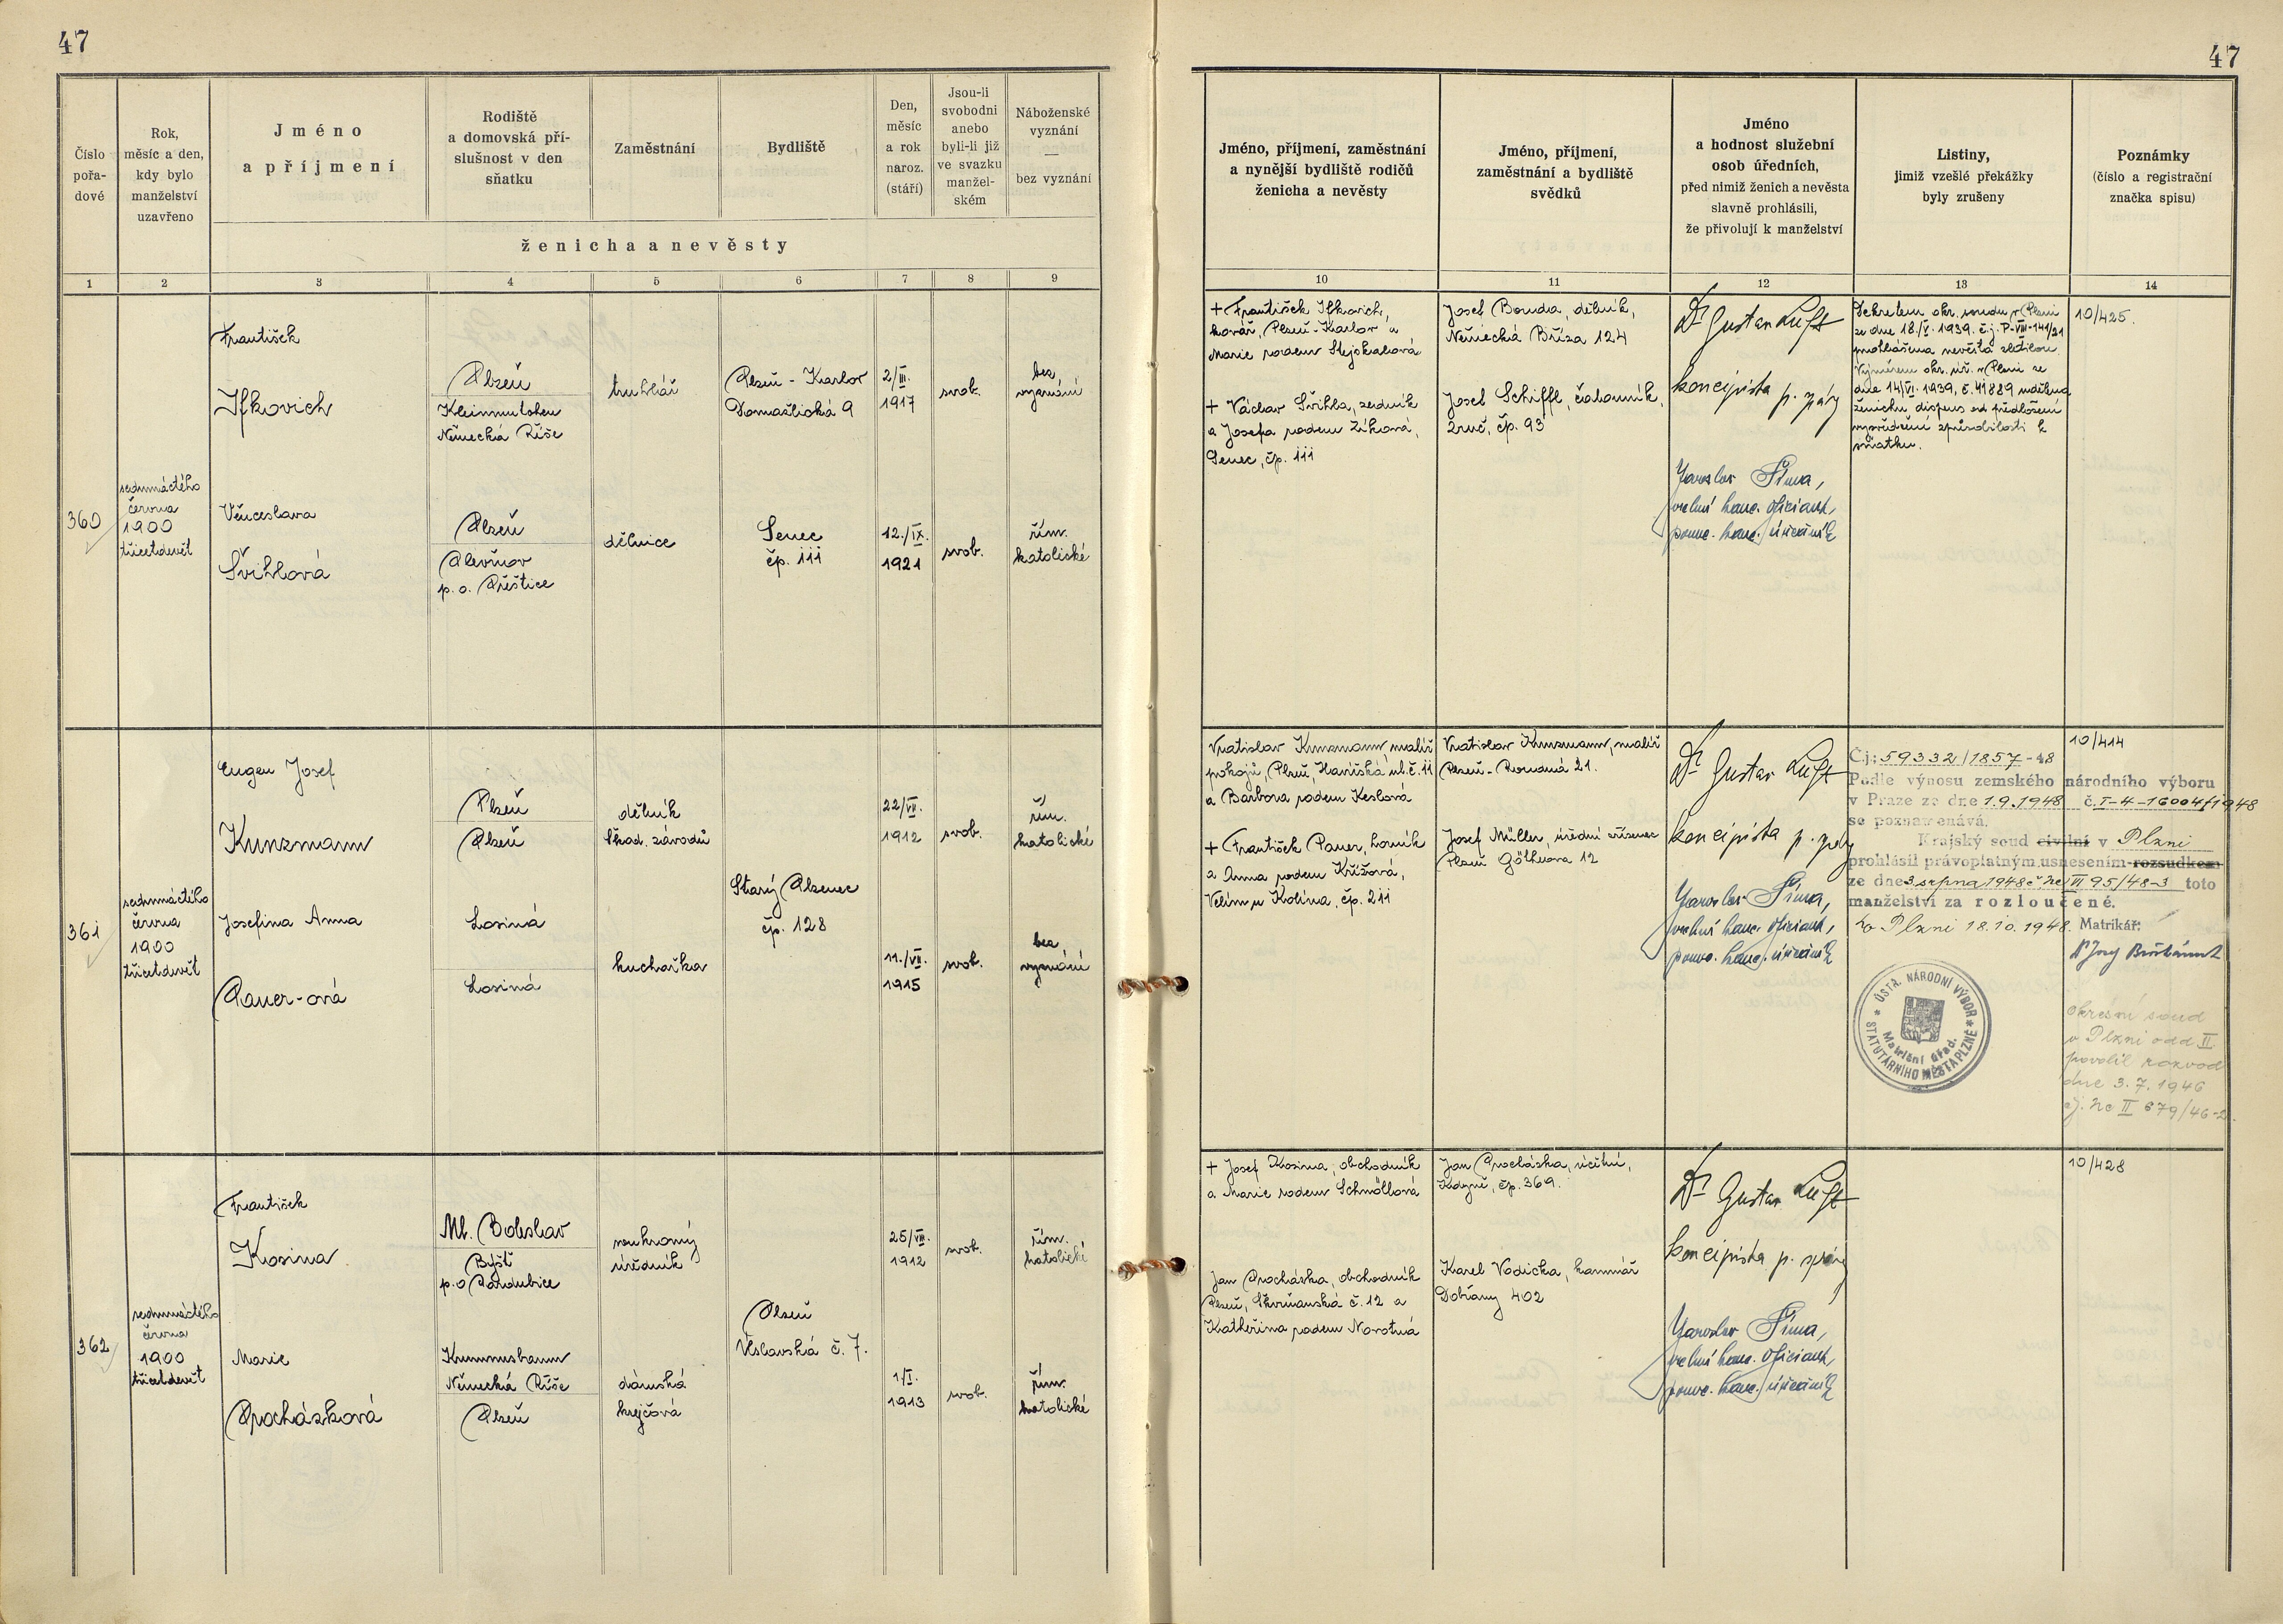 47
47
Číslo
pořa-
dové
Rok,
měsíc a den,
kdy bylo
manželství
uzavřeno
Jméno
a příjmení
Rodiště
a domovská pří-
slušnost v den
sňatku
Zaměstnání
Bydliště
Den,
měsíc
a rok
naroz.
(stáří)
Jsou-li
svobodni
anebo
byli-li již
ve svazku
manžel-
ském
Náboženské
vyznání
—
bez vyznání
ženicha a nevěsty
1 2 3 4 5 6 7 8 9
Jméno, příjmení, zaměstnání
a nynější bydliště rodičů
ženicha a nevěsty
Jméno, příjmení,
zaměstnání a bydliště
svědků
Jméno
a hodnost služební
osob úředních,
před nimiž ženich a nevěsta
slavně prohlásili,
že přivolují k manželství
Listiny,
jimiž vzešlé překážky
byly zrušeny
Poznámky
(číslo a registrační
značka spisu)
10 11 12 13 14
360
sedmnáctého
června
1900
třicetdevět
František
Ifkovich
Plzeň
Německá Říše
truhlář
Plzeň - Karlov
Domažlická 9
2/III.
1917
svob.
bez
vyznání
Věnceslava
Švihlová
Plzeň
p. o. Přeštice
dělnice
Senec
čp. 111
12./IX.
1921
svob.
řím.
katolické
+ František Ifkovich,
kovář, Plzeň-Karlov a
Marie rodem Stejskalová
+ Václav Švihla, zedník
a Josefa rodem Žíková,
Senec, čp. 111
Josef Bouda, dělník,
Německá Bříza 124
Josef Schiffl, čalouník,
Zruč, čp. 93
Dr Gustav Luft
koncipista p. správy
Jaroslav Šíma,
vrchní kanc. oficiant,
pomoc. kanc. úředník
Dekretem okr. soudu v Plzni
ze dne 18./V. 1939. č.j. P-VIII-141/21
prohlášena nevěsta zletilou.
Výměrem okr. úř. v Plzni ze
dne 14/VI. 1939, č. 41889 udělena
ženichu dispens od předložení
vysvědčení způsobilosti k
sňatku.
10/425.
361
sedmnáctého
června
1900
třicetdevět
Eugen Josef
Kunzmann
Plzeň
Plzeň
dělník
Škod. závodů
22/VII.
1912
svob.
řím.
katolické
Starý Plzenec
čp. 128
Josefina Anna
Pauer-ová
Losiná
Losiná
kuchařka
11./VII.
1915
svob.
bez
vyznání
Vratislav Kunzmann, malíř
pokojů, Plzeň, Havířská ul. č. 11
a Barbora rodem Keslová
+ František Pauer, horník
a Anna rodem Křížová,
Velim u Kolína, čp. 211
Vratislav Kunzmann, malíř
Plzeň - Rovná 21.
Josef Müller, úřední zřízenec
Plzeň Göthova 12
Dr Gustav Luft
koncipista p. správy
Jaroslav Šíma,
vrchní kanc. oficiant,
pomoc. kanc. úředník
10/414
Č.j: 59332/1857-48
Podle výnosu zemského národního výboru
v Praze ze dne 1.9.1948 č. I-4-16004/1948
se poznamenává,
Krajský soud civilní v Plzni
prohlásil právoplatným usnesením rozsudkem
ze dne 3 srpna 1948 č Nc VI 95/48-3 toto
manželství za rozloučené.
V Plzni 18.10.1948. Matrikář:
ÚSTŘ. NÁRODNÍ VÝBOR
STATUTÁRNÍHO MĚSTA PLZNĚ
Matriční úřad.
Okresní soud
v Plzni odd II.
povolil rozvod
dne 3.7.1946
čj. Nc II 679/46-2.
362
sedmnáctého
června
1900
třicetdevět
František
Kosina
Ml. Boleslav
Býšť
p. o Pardubice
soukromý
úředník
25/VIII.
1912
svob.
řím.
katolické
Plzeň
Věslavská č. 7.
Marie
Procházková
Německá Říše
Plzeň
dámská
krejčová
1/I.
1913
svob.
řím.
katolické
+ Josef Kosina, obchodník
a Marie rodem Schnöllová
Jan Procházka, obchodník
Plzeň, Skvrňanská č. 12 a
Kateřina rodem Novotná
Jan Procházka, účetní,
Kdyně, čp. 369.
Karel Vodička, kamnář
Dobřany 402
Dr Gustav Luft
koncipista p. správy
Jaroslav Šíma,
vrchní kanc. oficiant,
pomoc. kanc. úředník
10/428